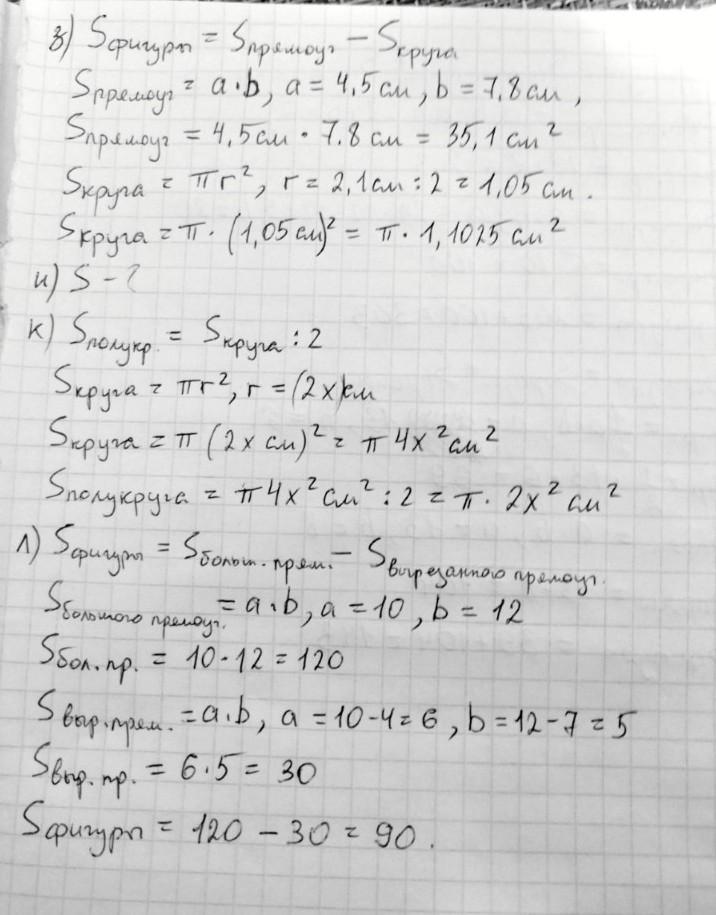 з) Sфигуры = Sпрямоуг − Sкруга
Sпрямоуг = a·b, a = 4,5 см, b = 7,8 см,
Sпрямоуг = 4,5 см · 7,8 см = 35,1 см²
Sкруга = πr², r = 2,1 см : 2 = 1,05 см.
Sкруга = π · (1,05 см)² = π · 1,1025 см²
и) S − ?
к) Sполукр. = Sкруга : 2
Sкруга = πr², r = (2x) см
Sкруга = π (2x см)² = π 4x² см²
Sполукруга = π 4x² см² : 2 = π · 2x² см²
л) Sфигуры = Sбольш. прям. − Sвырезанного прямоуг.
Sбольшого прямоуг. = a·b, a = 10, b = 12
Sбол. пр. = 10 · 12 = 120
Sвыр. прям. = a·b, a = 10 − 4 = 6, b = 12 − 7 = 5
Sвыр. пр. = 6 · 5 = 30
Sфигуры = 120 − 30 = 90.